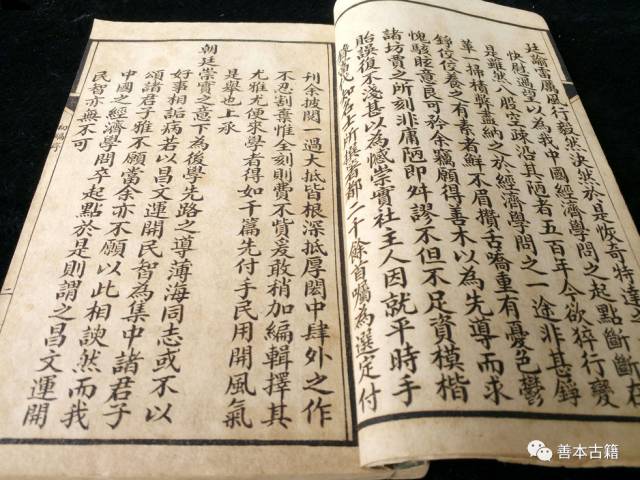 廷諭雷厲風行毅然決然於是恢奇特達之
快慰過望以為我中國經濟學問之起點斷斷在
是雖然八股空疏沿其陋者五百年今欲猝行變
革一掃榛獎盡納之於經濟學問之一途非甚錚
錚佼佼養之有素者鮮不眉攢舌嚅重有憂色鬱
愧駭眩意良可矜余竊願得善本以為先導而求
諸坊賈之所刻非庸陋即舛謬不但不足資模楷
胎誤復不淺甚以為憾崇實社主人因就平時手
名士所撰箸都二千餘首囑為選定付
刊余披閱一過大抵皆根深抵厚閎中肆外之作
不忍割棄惟全刻則費不貲爰敢稍加編輯擇其
尤雅尤便來學者得如千篇先付手民用開風氣
是舉也上承
朝廷崇實之意下為後學先路之導薄海同志或不以
好事相詬病若以昌文運開民智為集中諸君子
頌諸君子雅不願當余亦不願以此相諛然而我
中國之經濟學問卒起點於是則謂之昌文運開
民智亦無不可
善本古籍